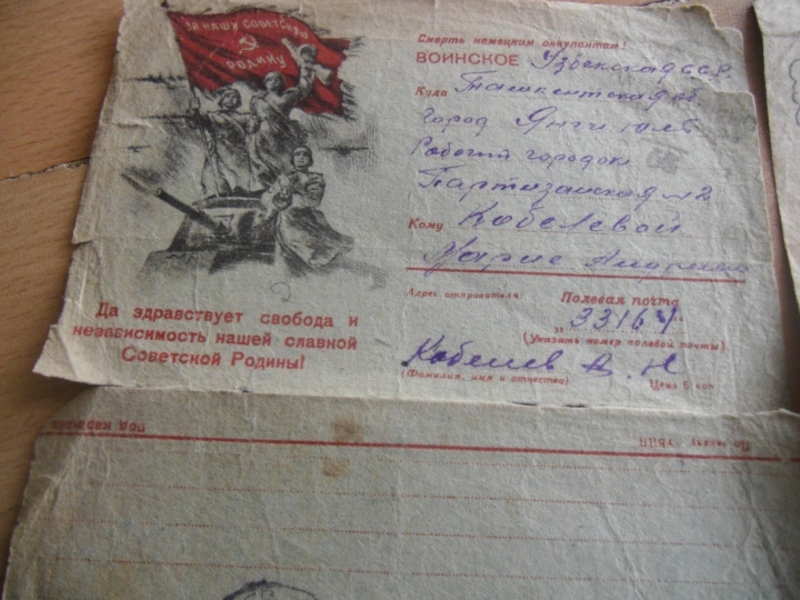 ЗА НАШУ СОВЕТСКУЮ
РОДИНУ
Смерть немецким оккупантам!
ВОИНСКОЕ Узбекская ССР.
Куда Ташкентская об.
город Янги юль
Робочий городок
Партизанская 2
Кому Кобелевой
Марие Андреевне
Да здравствует свобода и
независимость нашей славной
Советской Родины!
Адрес отправителя: Полевая почта
„33164“
(Указать номер полевой почты)
Кобелев А. Н
(Фамилия, имя и отчество) Цена 5 коп